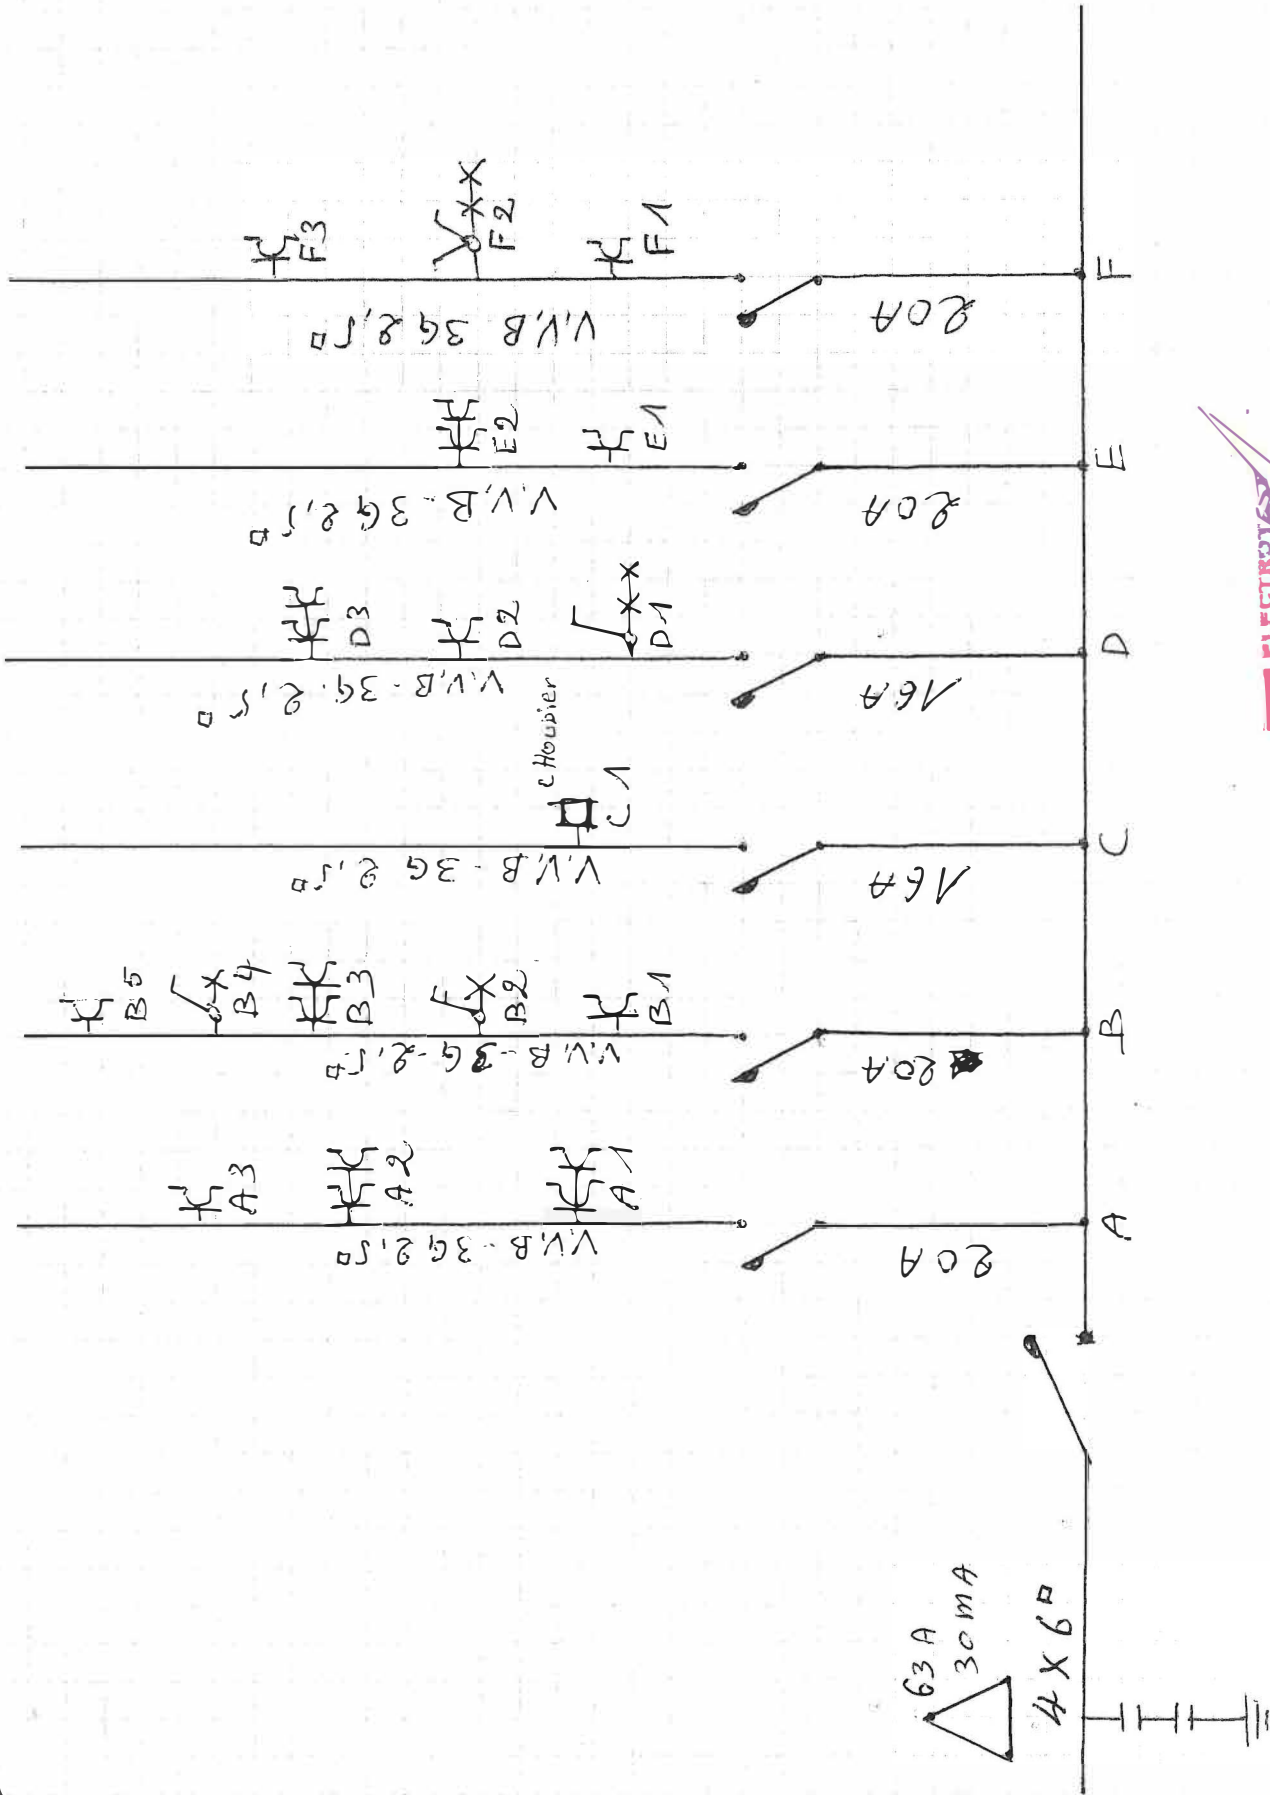 63A
30mA
4 X 6 □
A
20A
V.V.B - 3G 2,5 □
A1
A2
A3
B
20A
V.V.B - 3G - 2,5 □
B1
B2
B3
B4
B5
C
16A
V.V.B - 3G 2,5 □
C1
D
16A
V.V.B - 3G. 2,5 □
D1
D2
D3
E
20A
V.V.B - 3G 2,5 □
E1
E2
F
20A
V.V.B 3G 2,5 □
F1
F2
F3